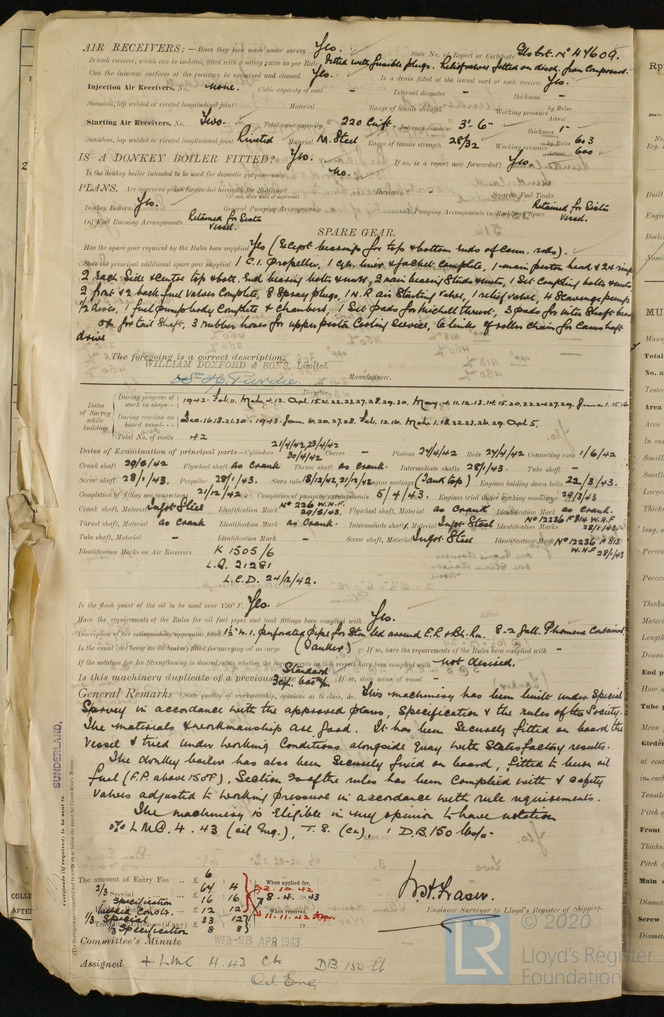 AIR RECEIVERS:— Have they been made under survey Yes. State No. of Report or Certificate Glo Cert. No 47609.
Is each receiver, which can be isolated, fitted with a safety valve as per Rule Fitted with fusible plugs. Relief valves fitted on disch. from Compressor.
Can the internal surfaces of the receivers be examined and cleaned Yes. Is a drain fitted at the lowest part of each receiver Yes.
Injection Air Receivers, No. None. Cubic capacity of each - Internal diameter - thickness -
Seamless, lap welded or riveted longitudinal joint Material Range of tensile strength Working pressure by Rules Actual
Starting Air Receivers, No. Two. Total cubic capacity 220 Cu. ft. Internal diameter 3'-6" thickness 1"
Seamless, lap welded or riveted longitudinal joint Riveted Material M. Steel Range of tensile strength 28/32 Working pressure by Rules 603 Actual 600
IS A DONKEY BOILER FITTED? Yes. If so, is a report now forwarded? Yes.
Is the donkey boiler intended to be used for domestic purposes only no.
PLANS. Are approved plans forwarded herewith for Shafting Receivers - Separate Fuel Tanks
Donkey Boilers Yes. General Pumping Arrangements Pumping Arrangements in Machinery Space Retained for Sister Vessel.
Oil Fuel Burning Arrangements Retained for Sister Vessel.
SPARE GEAR.
Has the spare gear required by the Rules been supplied Yes (Except bearings for top & bottom ends of Conn. rods).
State the principal additional spare gear supplied 1 C.I. Propeller, 1 cyl. liner & jacket complete, 1 main piston head & 24 rings
2 each Side & Centre top & bott. End bearing bolts & nuts, 2 main bearing Studs & nuts, 1 Set Coupling bolts & nuts
2 front & 2 back fuel valves Complete, 8 Spray plugs, 1 N.R. air Starting valve, 1 relief valve, 4 Scavenge pump
1/2 discs, 1 fuel pump body Complete & Chambers, 1 Set pads for Michell thrust, 3 pads for inter Shaft
for tail Shaft, 3 rubber hoses for upper piston Cooling Service, 6 links of roller chain for Camshaft
drive
The foregoing is a correct description,
WILLIAM DOXFORD & SONS, Limited.
Manufacturer.
Director
Dates of Survey while building
During progress of work in shops - - 1942. Feb. 11. Mch. 4. 12. Apr. 15. 21. 22. 23. 27. 28. 29. 30. May. 11. 12. 13. 14. 15. 20. 22. 27. 29. June 1. 15. 16
During erection on board vessel - - - Dec. 16. 18. 21. 30. 1943. Jan. 16. 20. 27. 28. Feb. 12. 16. Mch. 1. 18. 22. 23. 26. 29. Apl. 5.
Total No. of visits 42
Dates of Examination of principal parts—Cylinders 21/4/42, 23/4/42 30/4/42 Covers - Pistons 24/4/42 Rods 24/4/42 Connecting rods 1/6/42
Crank shaft 29/5/42 Flywheel shaft as Crank Thrust shaft as Crank. Intermediate shafts 28/1/43. Tube shaft -
Screw shaft 28/1/43. Propeller 28/1/43. Stern tube 18/12/42, 21/12/42 Engine seatings (Tank top) Engines holding down bolts 22/3/43.
Completion of fitting sea connections 21/12/42. Completion of pumping arrangements 5/4/43. Engines tried under working conditions 29/3/43
Crank shaft, Material Ingot Steel Identification Mark No 226 W.H.F. Flywheel shaft, Material as Crank Identification Mark as Crank.
Thrust shaft, Material as Crank Identification Mark as Crank. Intermediate shafts, Material Ingot Steel Identification Marks No 12236 F 814 W.H.F 28/1/43
Tube shaft, Material - Identification Mark - Screw shaft, Material Ingot Steel Identification Mark No 12236 F 813 W.H.F 28/1/43
Identification Marks on Air Receivers K 1505/6
L.A. 21281
L.C.D. 24/2/42.
Is the flash point of the oil to be used over 150° F. Yes.
Have the requirements of the Rules for oil fuel pipes and tank fittings been complied with Yes.
Description of fire extinguishing apparatus fitted 1½" W.I. perforated pipe for Stm led around E.R & Blr. Rm. 8-2 Gall. Phomene Contained
Is the vessel (not being an oil tanker) fitted for carrying oil as cargo (Tanker) If so, have the requirements of the Rules been complied with -
If the notation for Ice Strengthening is desired, state whether the requirements in this respect have been complied with not desired.
Is this machinery duplicate of a previous case Standard 3cyl. 600 m/m If so, state name of vessel -
General Remarks (State quality of workmanship, opinions as to class, &c. This machinery has been built under Special
Survey in accordance with the approved plans, Specification & the rules of the Society.
The materials & workmanship are good. It has been Securely fitted on board the
vessel & tried under working Conditions alongside Quay with Satisfactory results.
The donkey boiler has also been Securely fixed on board, fitted to burn oil
fuel (F.P. above 150F), Section 20 of the rules has been Complied with & Safety
valves adjusted to working pressure in accordance with rule requirements.
The machinery is Eligible in my opinion to have notation
LMC. 4.43 (oil Eng.), T.S. (CL), 1 D.B. 150 lbs.
SUNDERLAND.
The amount of Entry Fee .. £ 6
2/3 Special .. £ 64 4
Specification £ 16 16
£ 12 12
1/3 Special £ 33 12
1/3 Specification £ 8 8
When applied for,
2.10.42
8.4.1943
When received,
11.11.42
W.H. Fraser.
Engineer Surveyor to Lloyd's Register of Shipping.
Committee's Minute WED 28 APR 1943
Assigned + LMC 4.43 CL DB 150 lb
Oil Eng.
© 2020
LR
Lloyd's Register
Foundation